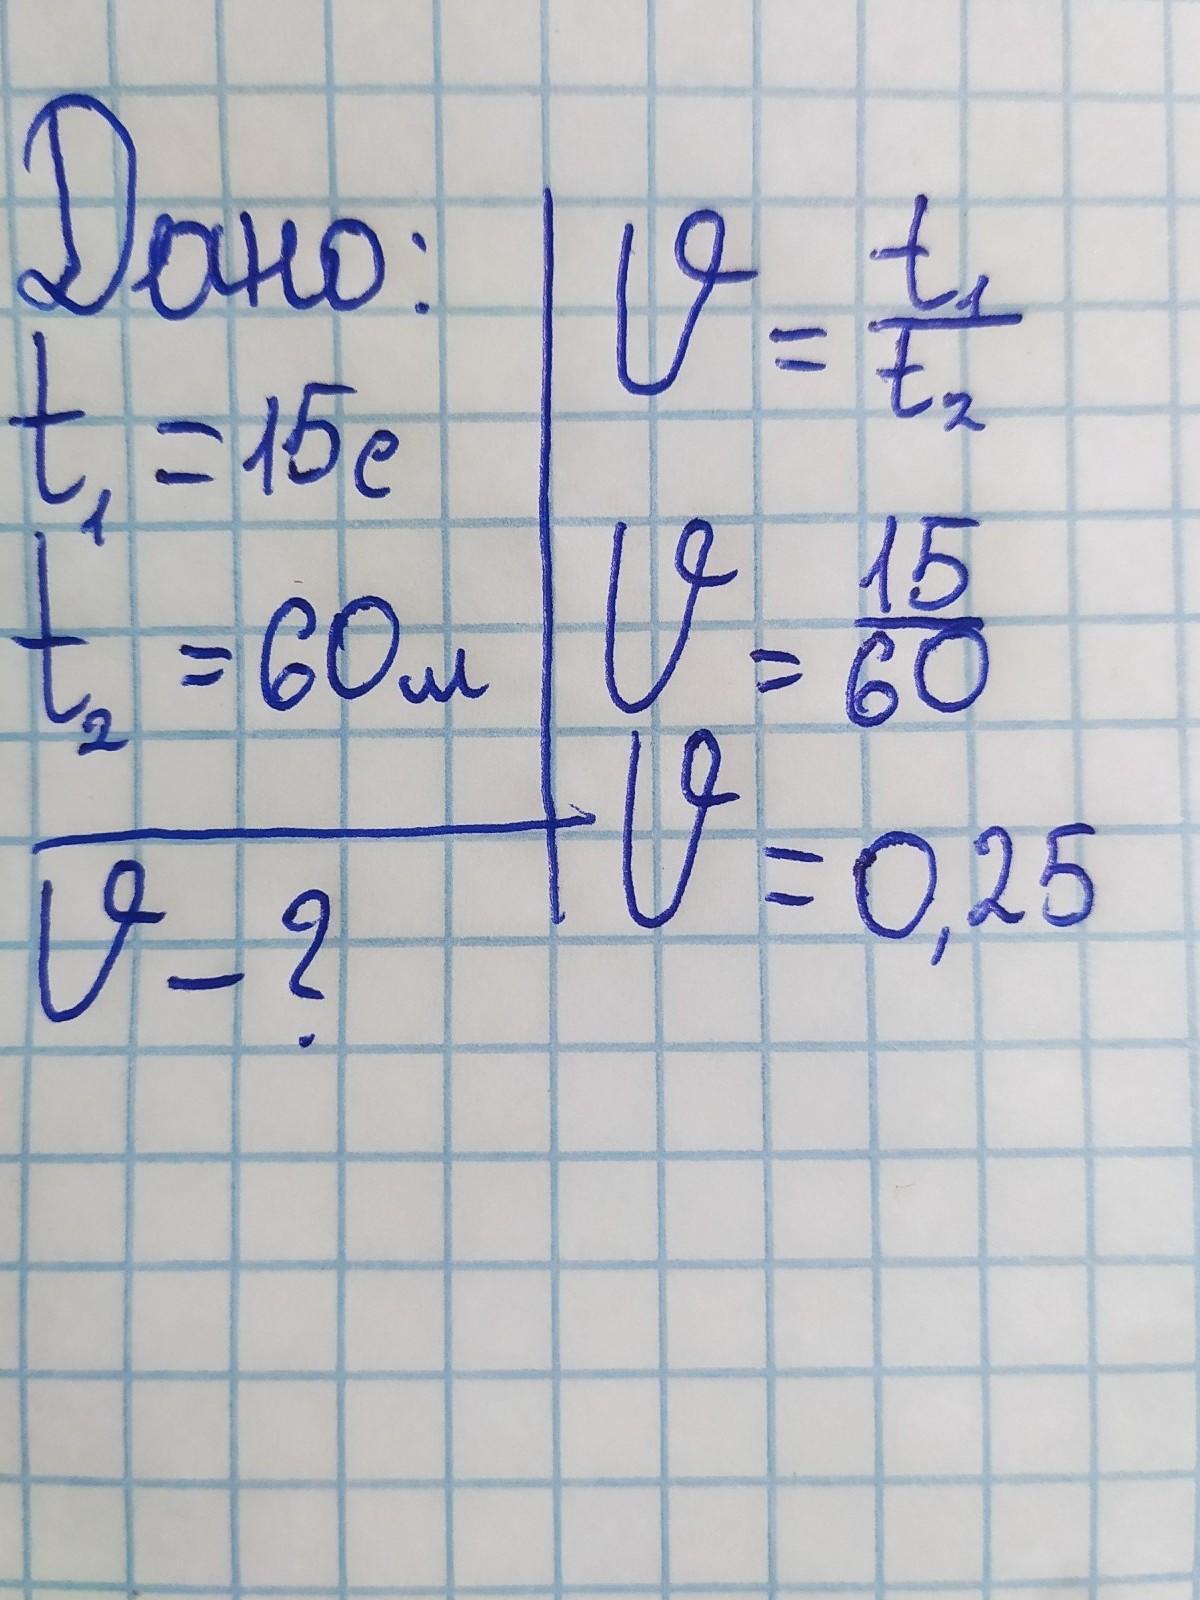 Дано:
t₁ = 15с
t₂ = 60м
υ - ?
υ = t₁/t₂
υ = 15/60
υ = 0,25